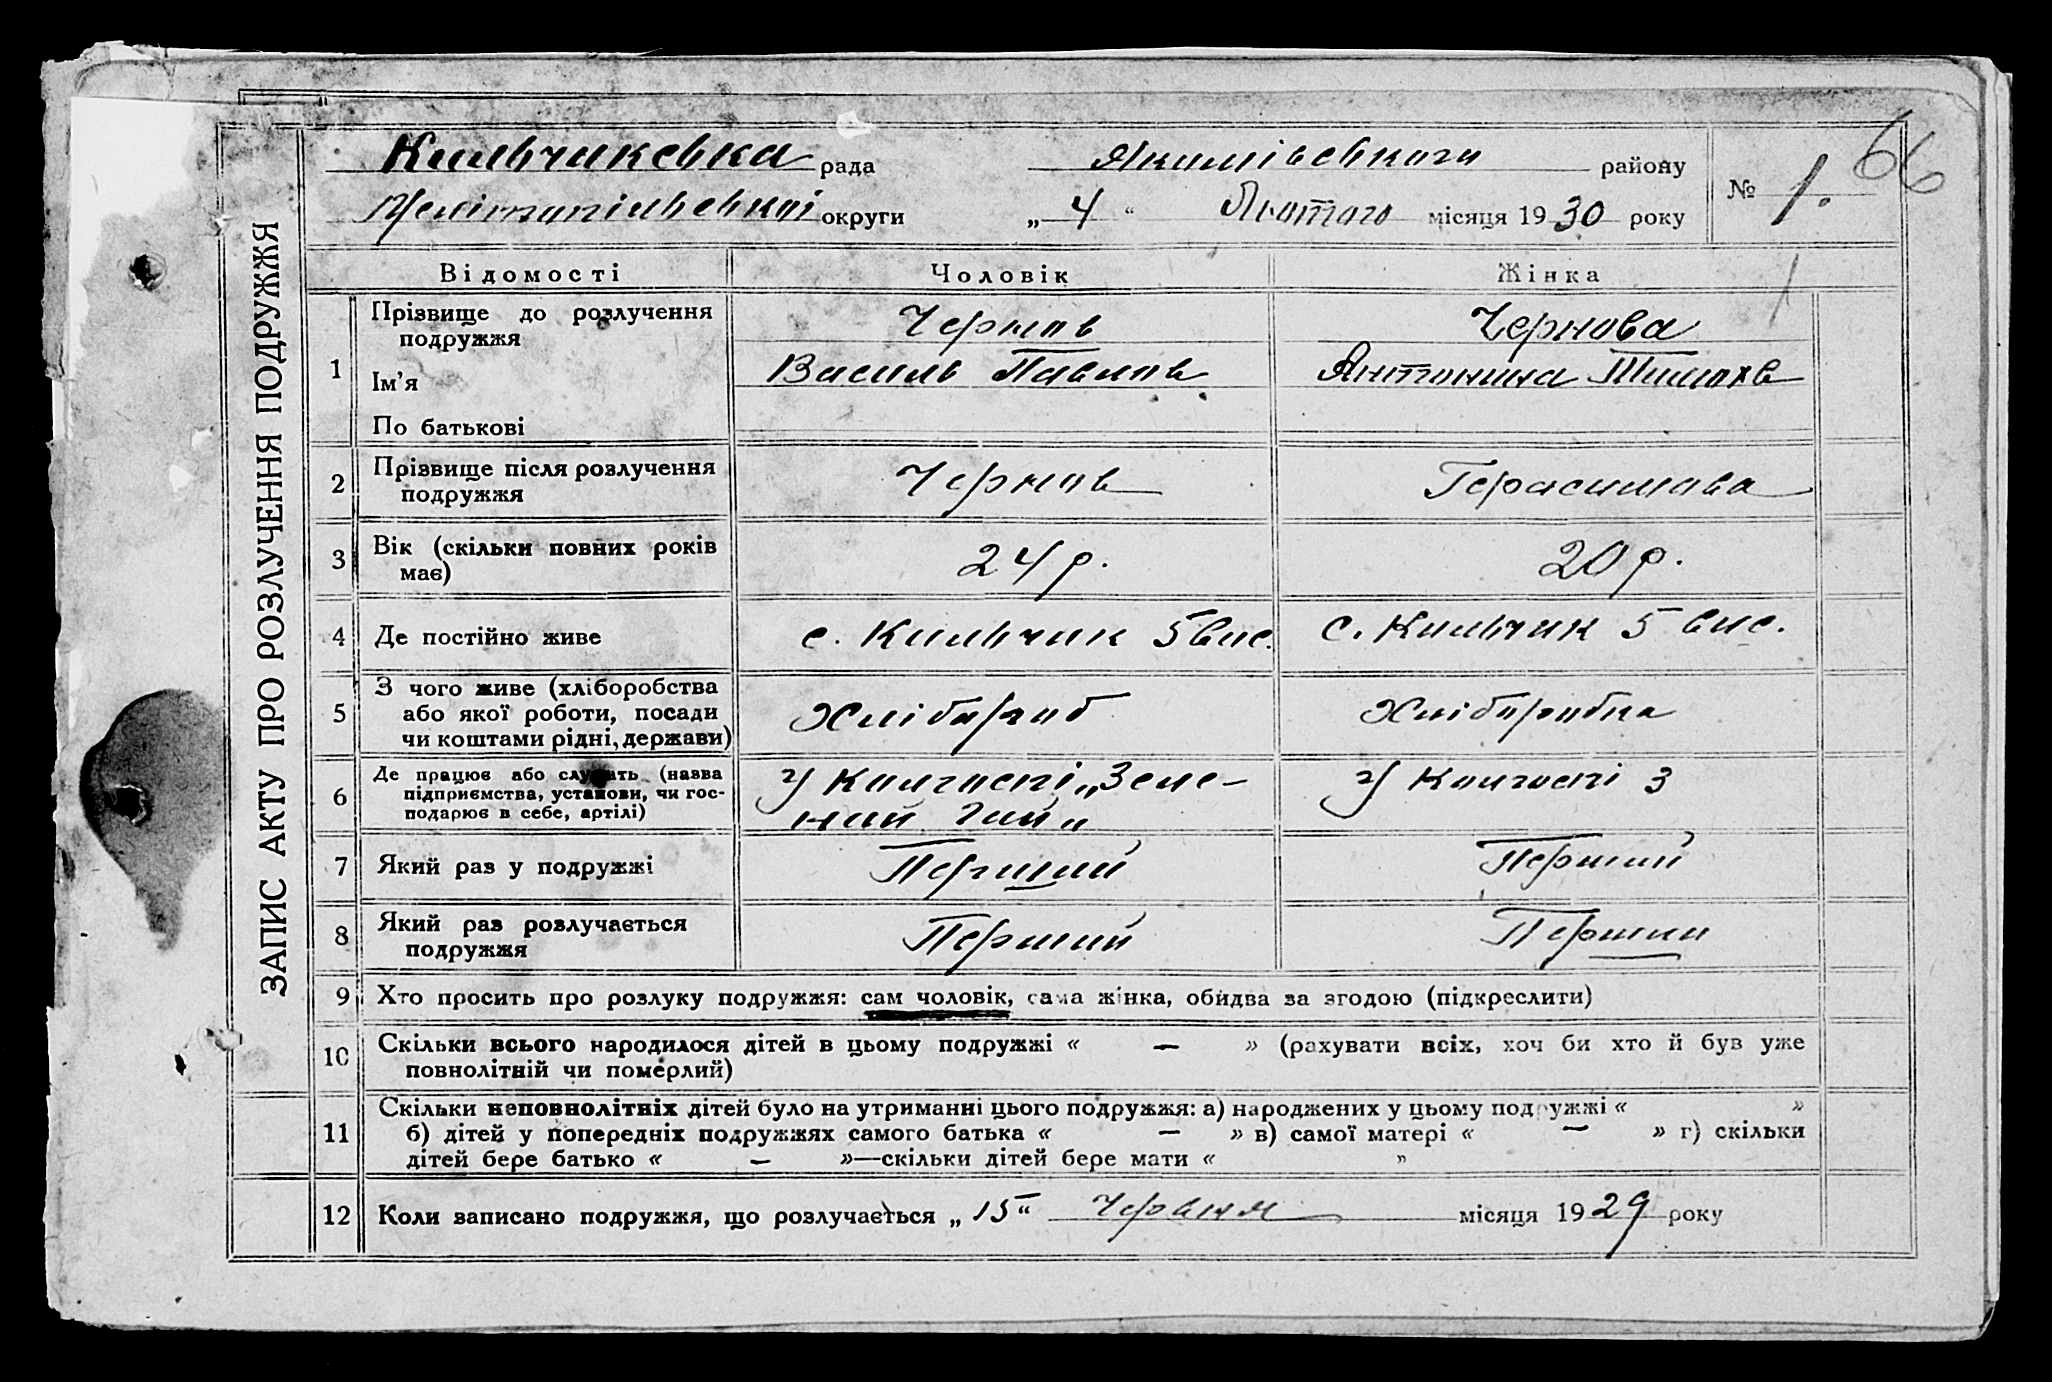 66
ЗАПИС АКТУ ПРО РОЗЛУЧЕННЯ ПОДРУЖЖЯ
Кильчикевка рада Якимівського району
Мелітопільської округи „ 4 “ Лютого місяця 1930 року
№ 1.
Відомості Чоловік Жінка
1
Прізвище до розлучення подружжя Чернов Чернова
Ім’я Василь Павлов Антонина Тимохв
По батькові
2 Прізвище після розлучення
подружжя Чернов Герасимова
3 Вік (скільки повних років
має) 24 р. 20 р.
4 Де постійно живе с. Кильчик 5 вис. с. Кильчик 5 вис.
5 З чого живе (хліборобства
або якої роботи, посади
чи коштами рідні, держави) Хлібороб Хліборобка
6 Де працює або служить (назва
підприємства, установи, чи гос-
подарює в себе, артілі)
У Колгоспі „Зеле-
ний Гай“
У Колгоспі З
7 Який раз у подружжі Перший Перший
8 Який раз розлучається
подружжя Перший Перший
9 Хто просить про розлуку подружжя: сам чоловік, сама жінка, обидва за згодою (підкреслити)
10 Скільки всього народилося дітей в цьому подружжі « — » (рахувати всіх, хоч би хто й був уже
повнолітній чи померлий)
11 Скільки неповнолітніх дітей було на утриманні цього подружжя: а) народжених у цьому подружжі « »
б) дітей у попередніх подружжях самого батька « — » в) самої матері « — » г) скільки
дітей бере батько « — »—скільки дітей бере мати « »
12 Коли записано подружжя, що розлучається „ 15 “ Червня місяця 1929 року